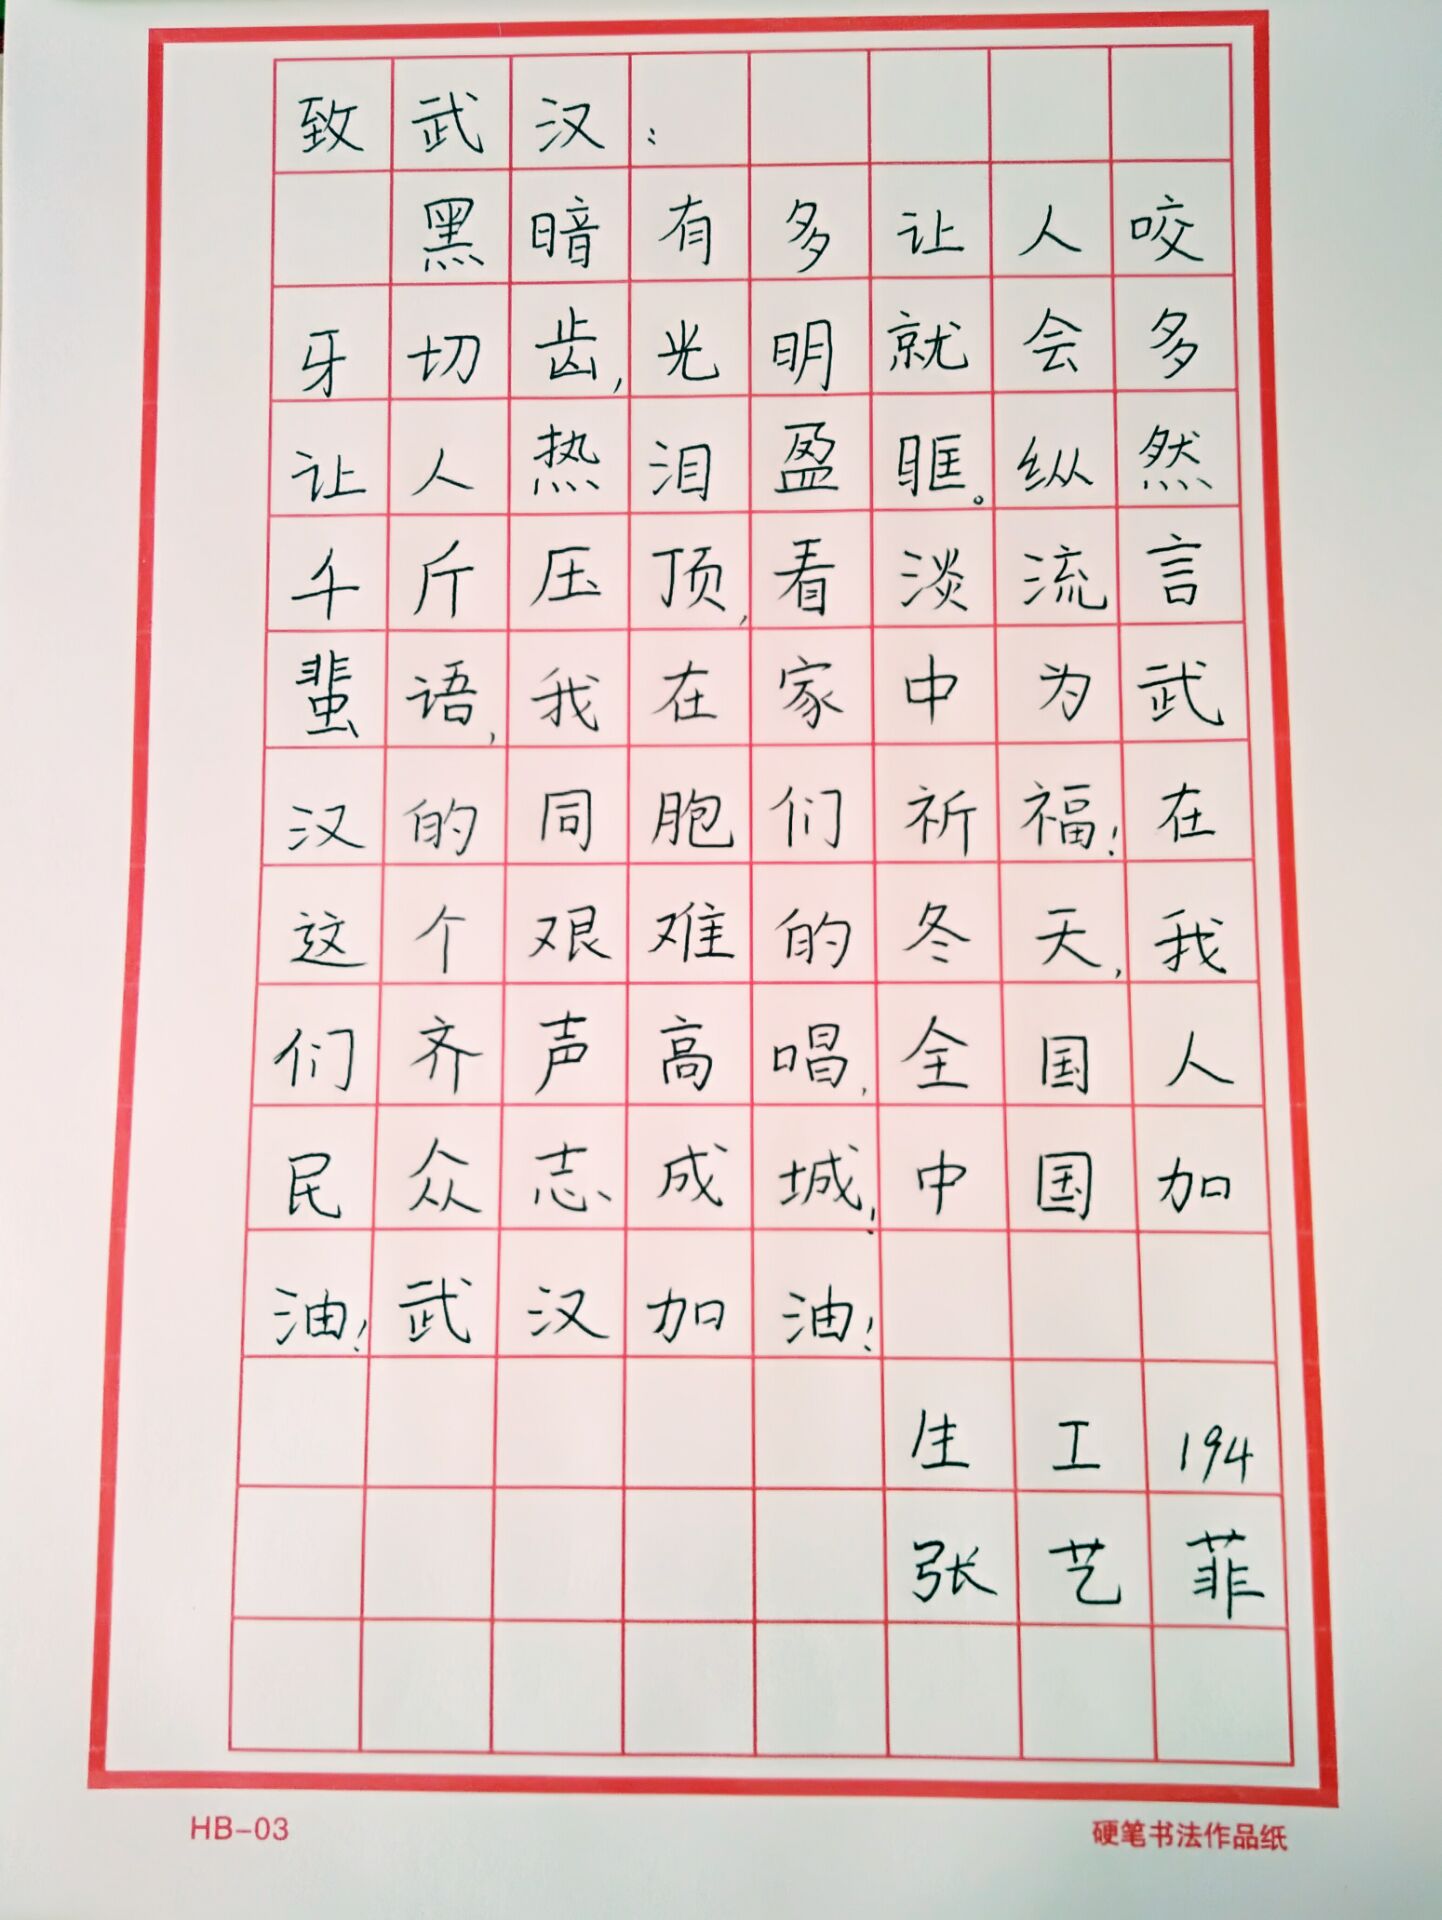 致武汉：
黑暗有多让人咬
牙切齿,光明就会多
让人热泪盈眶。纵然
千斤压顶,看淡流言
蜚语,我在家中为武
汉的同胞们祈福!在
这个艰难的冬天,我
们齐声高唱,全国人
民众志成城,中国加
油!武汉加油!
生工194
张艺菲
HB-03
硬笔书法作品纸